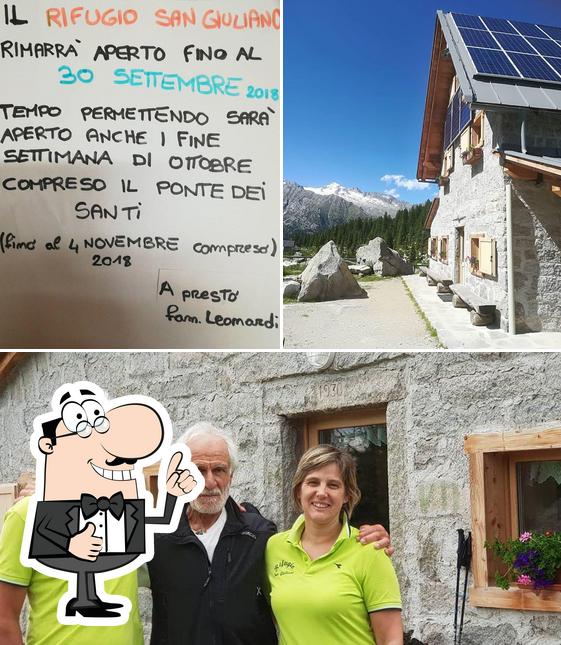 IL RIFUGIO SAN GIULIANO
RIMARRA' APERTO FINO AL
30 SETTEMBRE 2018
TEMPO PERMETTENDO SARA'
APERTO ANCHE I FINE
SETTIMANA DI OTTOBRE
COMPRESO IL PONTE DEI
SANTI
(fino al 4 NOVEMBRE compreso)
2018
A presto
fam. Leonardi